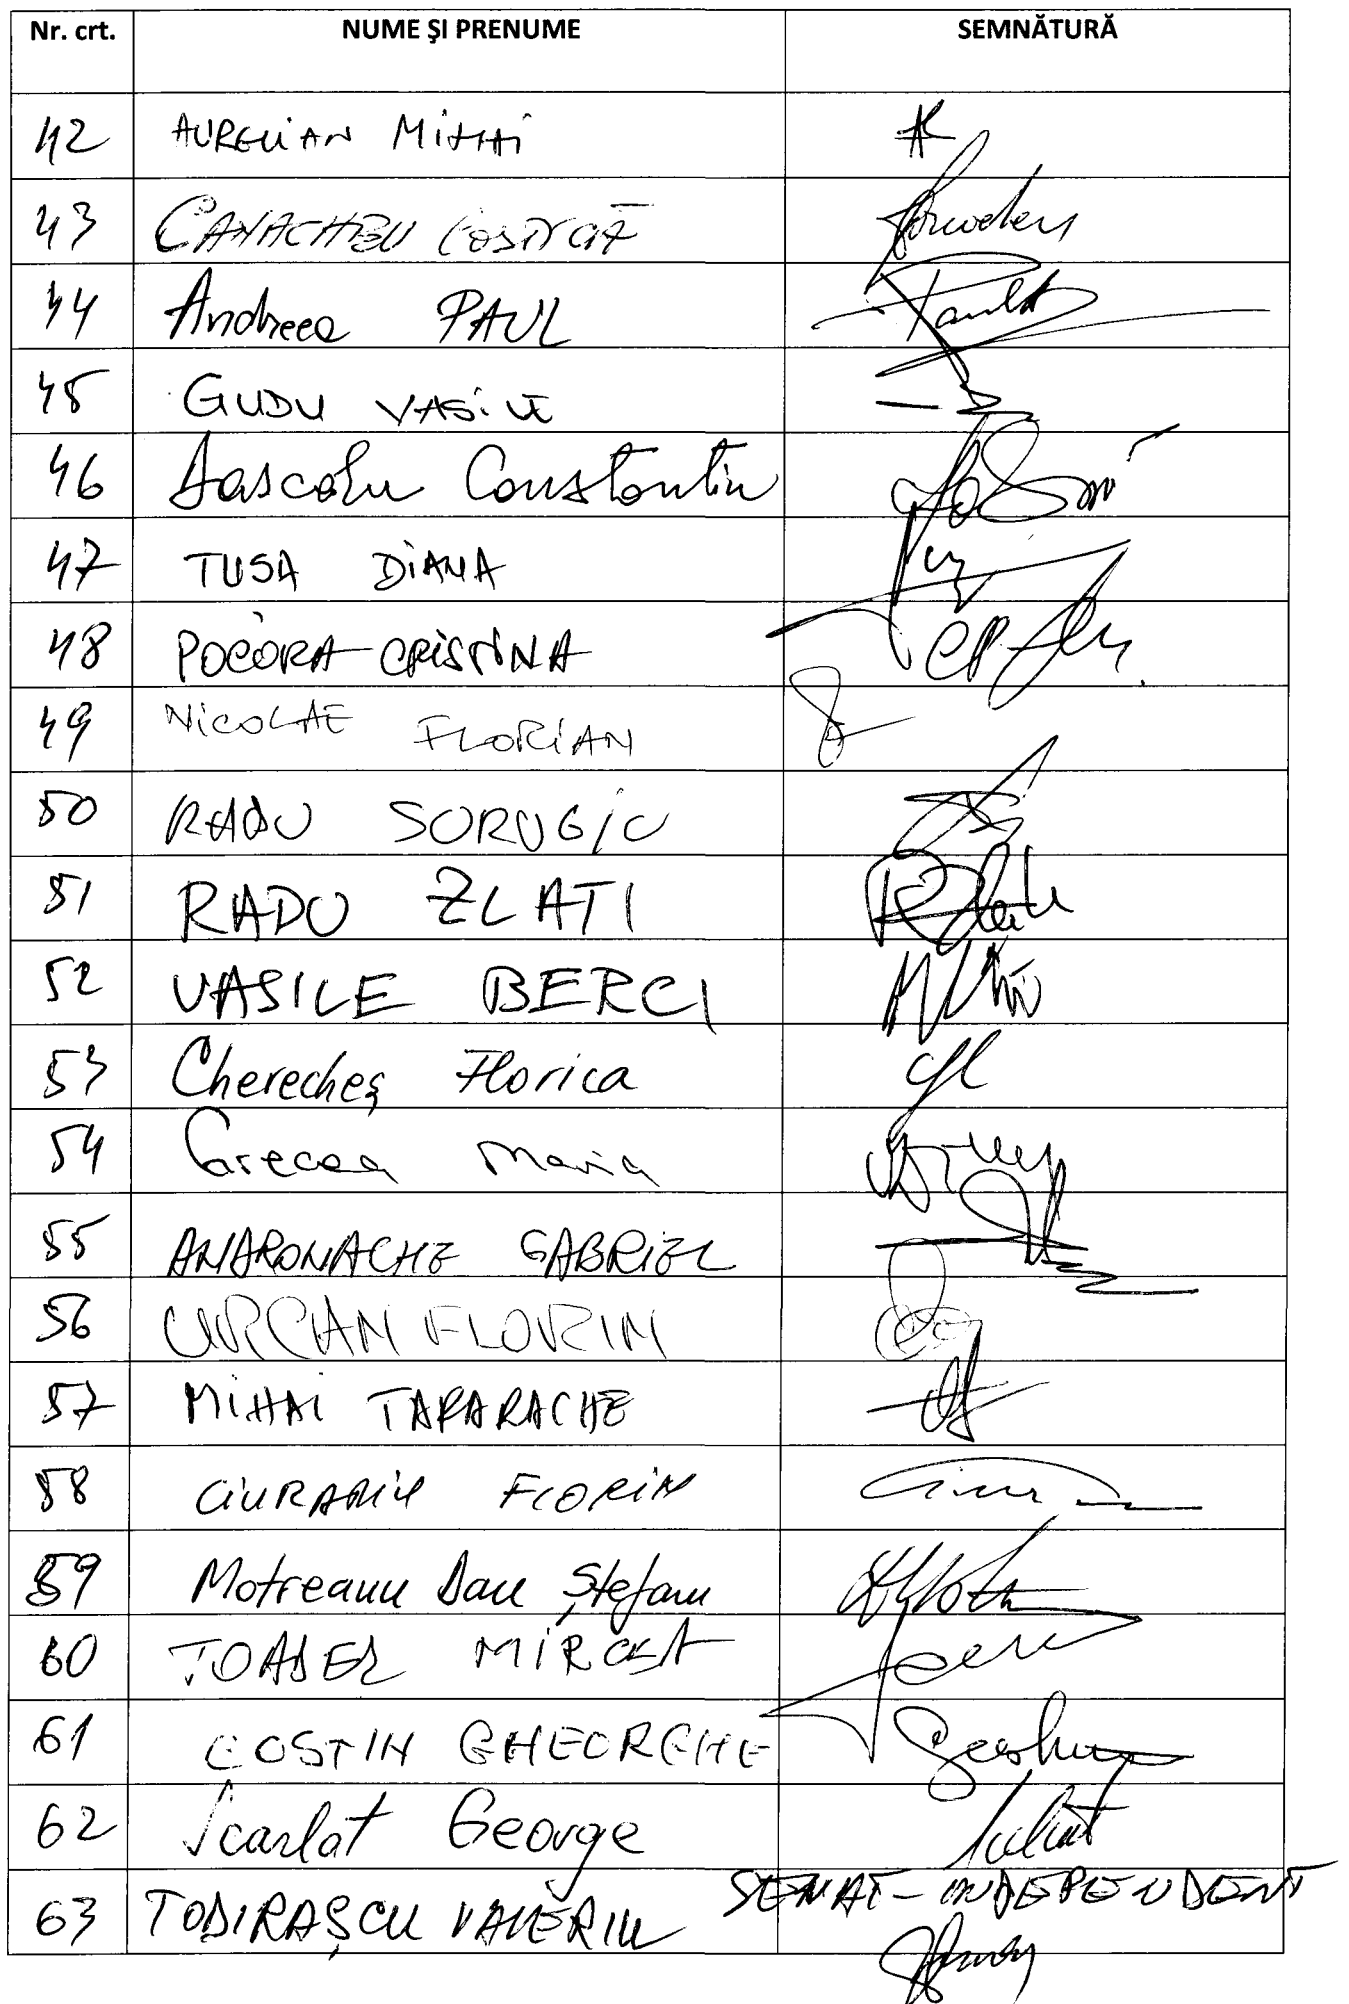 Nr. crt. NUME ŞI PRENUME SEMNĂTURĂ
42 AURELIAN MIHAI
43 CANACHEU COSTICĂ
44 Andreea PAUL
45 GUDU VASILE
46 Dascalu Constantin
47 TUSA DIANA
48 POCORA CRISTINA
49 NICOLAE FLORIAN
50 RADU SURUGIU
51 RADU ZLATI
52 VASILE BERCI
53 Cherecheş Florica
54 Grecea Maria
55 ANDRONACHE GABRIEL
56 URCAN FLORIN
57 MIHAI TARARACHE
58 CIURARIU FLORIN
59 Motreanu Dan Ştefan
60 TOADER MIRCEA
61 COSTIN GHEORGHE
62 Scarlat George
63 TODIRAŞCU VALERIU SENAT-INDEPENDENT